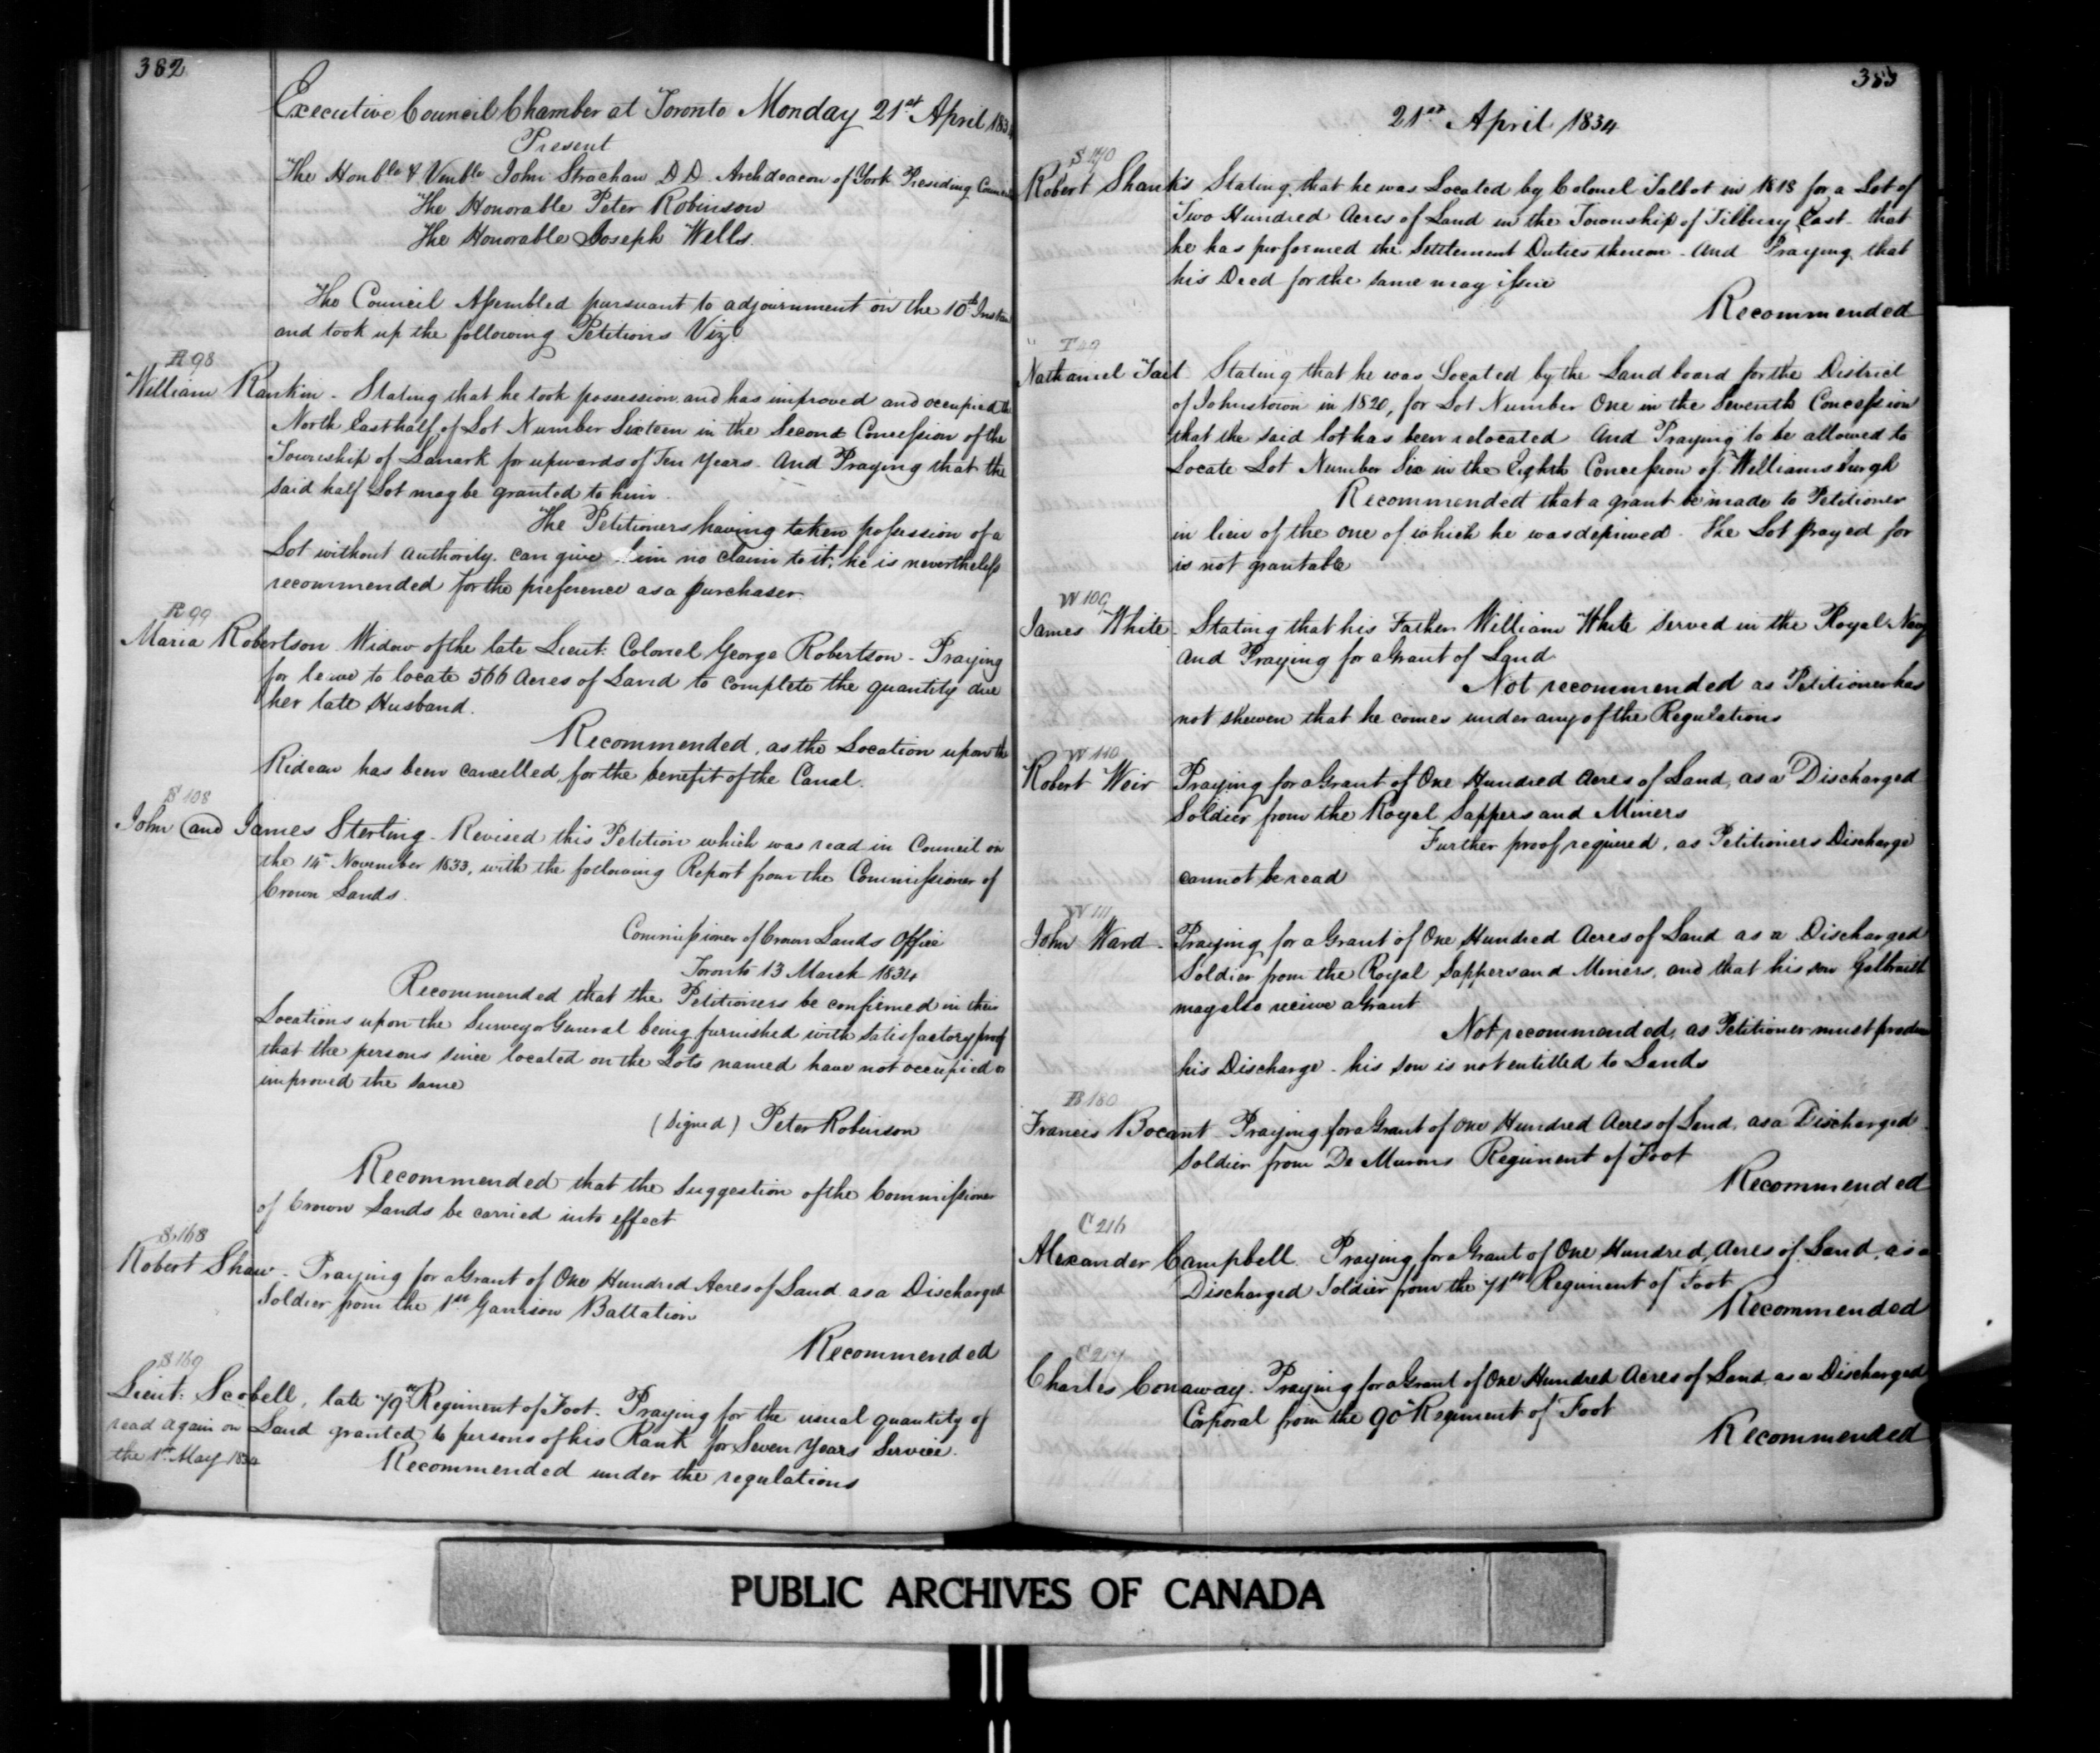 382
Executive Council Chamber at Toronto Monday 21st April 1834
Present
The Honble & Venble John Strachan D D. Archdeacon of York Presiding
The Honorable Peter Robinson
The Honorable Joseph Wells.
The Council Assembled pursuant to adjournment on the 10th
and took up the following Petitions Viz
R 98
William Rankin - Stating that he took possession and has improved and occupied the
North East half of Lot Number Sixteen in the Second Concession of the
Township of Lanark for upwards of Ten Years. And Praying that the
said half Lot may be granted to him.
The Petitioners having taken possession of a
Lot without authority. can give him no claim to it; he is nevertheless
recommended for the preference as a purchaser.
R 99
Maria Robertson Widow of the late Lieut: Colonel George Robertson - Praying
for leave to locate 566 Acres of Land to complete the quantity due
her late Husband.
Recommended, as the Location upon the
Rideau has been cancelled for the benefit of the Canal.
S 108
John and James Sterling - Revised this Petition which was read in Council on
the 14th November 1833, with the following Report from the Commissioner of
Crown Lands.
Commissioner of Crown Lands Office
Toronto 13 March 1834
Recommended that the Petitioners be confirmed in their
Locations upon the Surveyor General being furnished with satisfactory proof
that the persons since located on the Lots named have not occupied or
improved the same
(Signed) Peter Robinson
Recommended that the suggestion of the Commissioner
of Crown Lands be carried into effect
S 168
Robert Shaw - Praying for a Grant of One Hundred Acres of Land as a Discharged
Soldier from the 1st Garrison Battation
Recommended
S 169
Lieut: Scobell, late 79th Regiment of Foot - Praying for the usual quantity of
Land granted to persons of his Rank for Seven Years Service.
Recommended under the regulations
read again on
the 1st May 1834
383
21st April 1834
S 170
Robert Shanks Stating that he was Located by Colonel Talbot in 1818 for a Lot of
Two Hundred Acres of Land in the Township of Tilbury East - that
he has performed the Settlement Duties thereon - And Praying that
his Deed for the same may issue
Recommended
T 49
Nathaniel Tait Stating that he was Located by the Land board for the District
of Johnstown in 1820, for Lot Number One in the Seventh Concession
that the said lot has been relocated And Praying to be allowed to
Locate Lot Number Six in the Eighth Concession of Williamsburgh
Recommended that a grant be made to Petitioner
in lieu of the one of which he was deprived - The Lot prayed for
is not grantable
W 109
James White - Stating that his Father William White Served in the Royal Navy
And Praying for a Grant of Land
Not recommended as Petitioner has
not shewn that he comes under any of the Regulations
W 110
Robert Weir Praying for a Grant of One Hundred Acres of Land, as a Discharged
Soldier from the Royal Sappers and Miners
Further proof required, as Petitioners Discharge
cannot be read
W 111
John Ward - Praying for a Grant of One Hundred Acres of Land as a Discharged
Soldier from the Royal Sappers and Miners, and that his son Galbraith
may also receive a Grant
Not recommended, as Petitioner must produce
his Discharge - his son is not entitled to Lands
B 180
Francis Bocant - Praying for a Grant of One Hundred Acres of Land, as a Discharged
Soldier from De Murons Regiment of Foot
Recommended
C 216
Alexander Campbell. Praying for a Grant of One Hundred Acres of Land, as a
Discharged Soldier from the 71st Regiment of Foot
Recommended
C 217
Charles Conaway. Praying for a Grant of One Hundred Acres of Land as a Discharged
Corporal from the 90th Regiment of Foot
Recommended
PUBLIC ARCHIVES OF CANADA